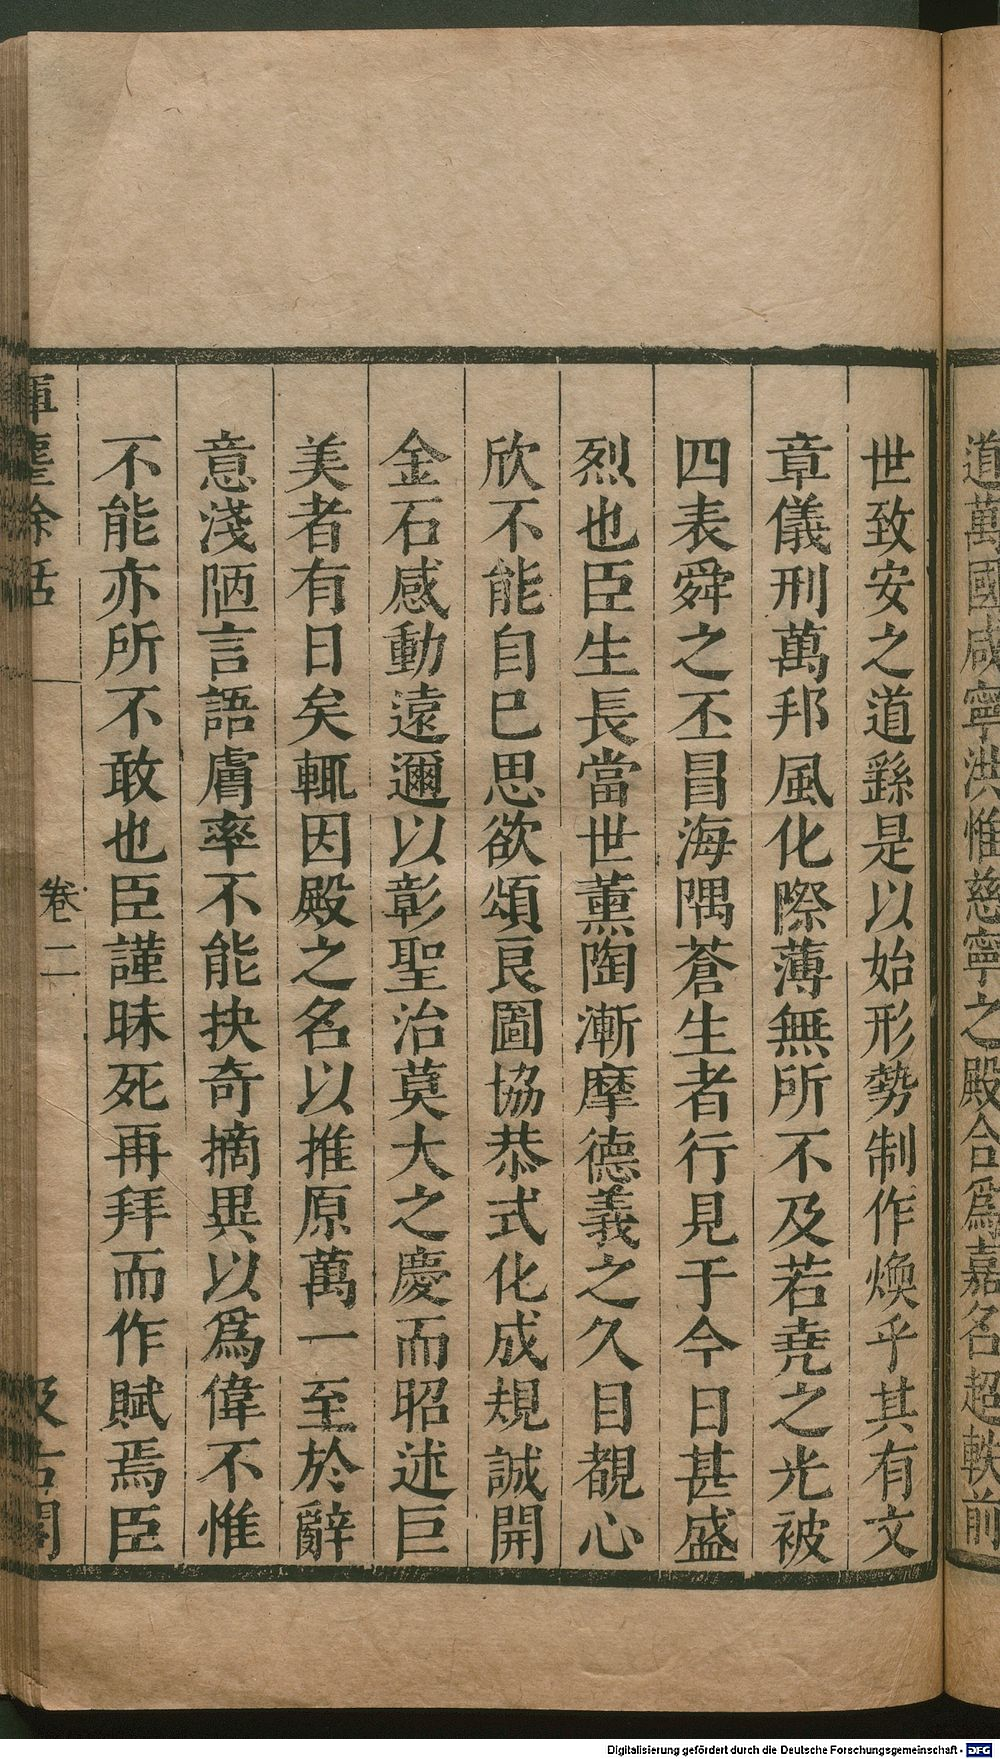 道萬國咸寧洪惟慈寧之殿合爲嘉名超軼前
世致安之道繇是以始形勢制作煥乎其有文
章儀刑萬邦風化際薄無所不及若堯之光被
四表舜之丕冒海隅蒼生者行見于今日甚盛
烈也臣生長當世薰陶漸摩德義之久目覩心
欣不能自已思欲頌良圖協恭式化成規誠開
金石感動遠邇以彰聖治莫大之慶而昭述巨
美者有日矣輒因殿之名以推原萬一至於辭
意淺陋言語膚率不能抉奇摘異以爲偉不惟
不能亦所不敢也臣謹昧死再拜而作賦焉臣
揮麈餘話
卷二
汲古閣
Digitalisierung gefördert durch die Deutsche Forschungsgemeinschaft - DFG